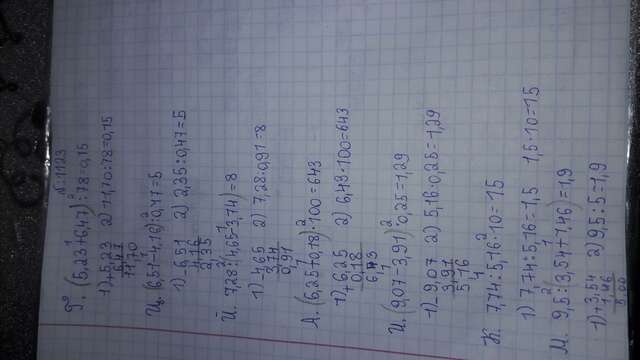 №1123
Р. (5,23+6,47):78=0,15
1) +5,23 2) 11,70:78=0,15
6,47
11,70
Ц. (6,51-4,16):0,47=5
1) 6,51 2) 2,35:0,47=5
4,16
2,35
Й. 7,28:(4,65-3,74)=8
1) 4,65 2) 7,28:0,91=8
3,74
0,91
А. (6,25+0,18)·100=643
1) +6,25 2) 6,43·100=643
0,18
6,43
И. (9,07-3,91)·0,25=1,29
1) -9,07 2) 5,16·0,25=1,29
3,91
5,16
К. 7,74:5,16·10=15
1) 7,74:5,16=1,5 1,5·10=15
М. 9,5:(3,54+1,46)=1,9
1) +3,54 2) 9,5:5=1,9
1,46
5,00